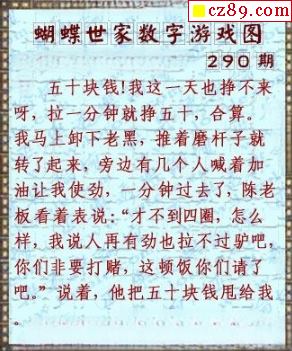 cz89.com
蝴蝶世家数字游戏图
290期
五十块钱!我这一天也挣不来
呀，拉一分钟就挣五十，合算。
我马上卸下老黑，推着磨杆子就
转了起来，旁边有几个人喊着加
油让我使劲，一分钟过去了，陈老
板看着表说：“才不到四圈，怎么
样，我说人再有劲也拉不过驴吧，
你们非要打赌，这顿饭你们请了
吧。”说着，他把五十块钱甩给我
。